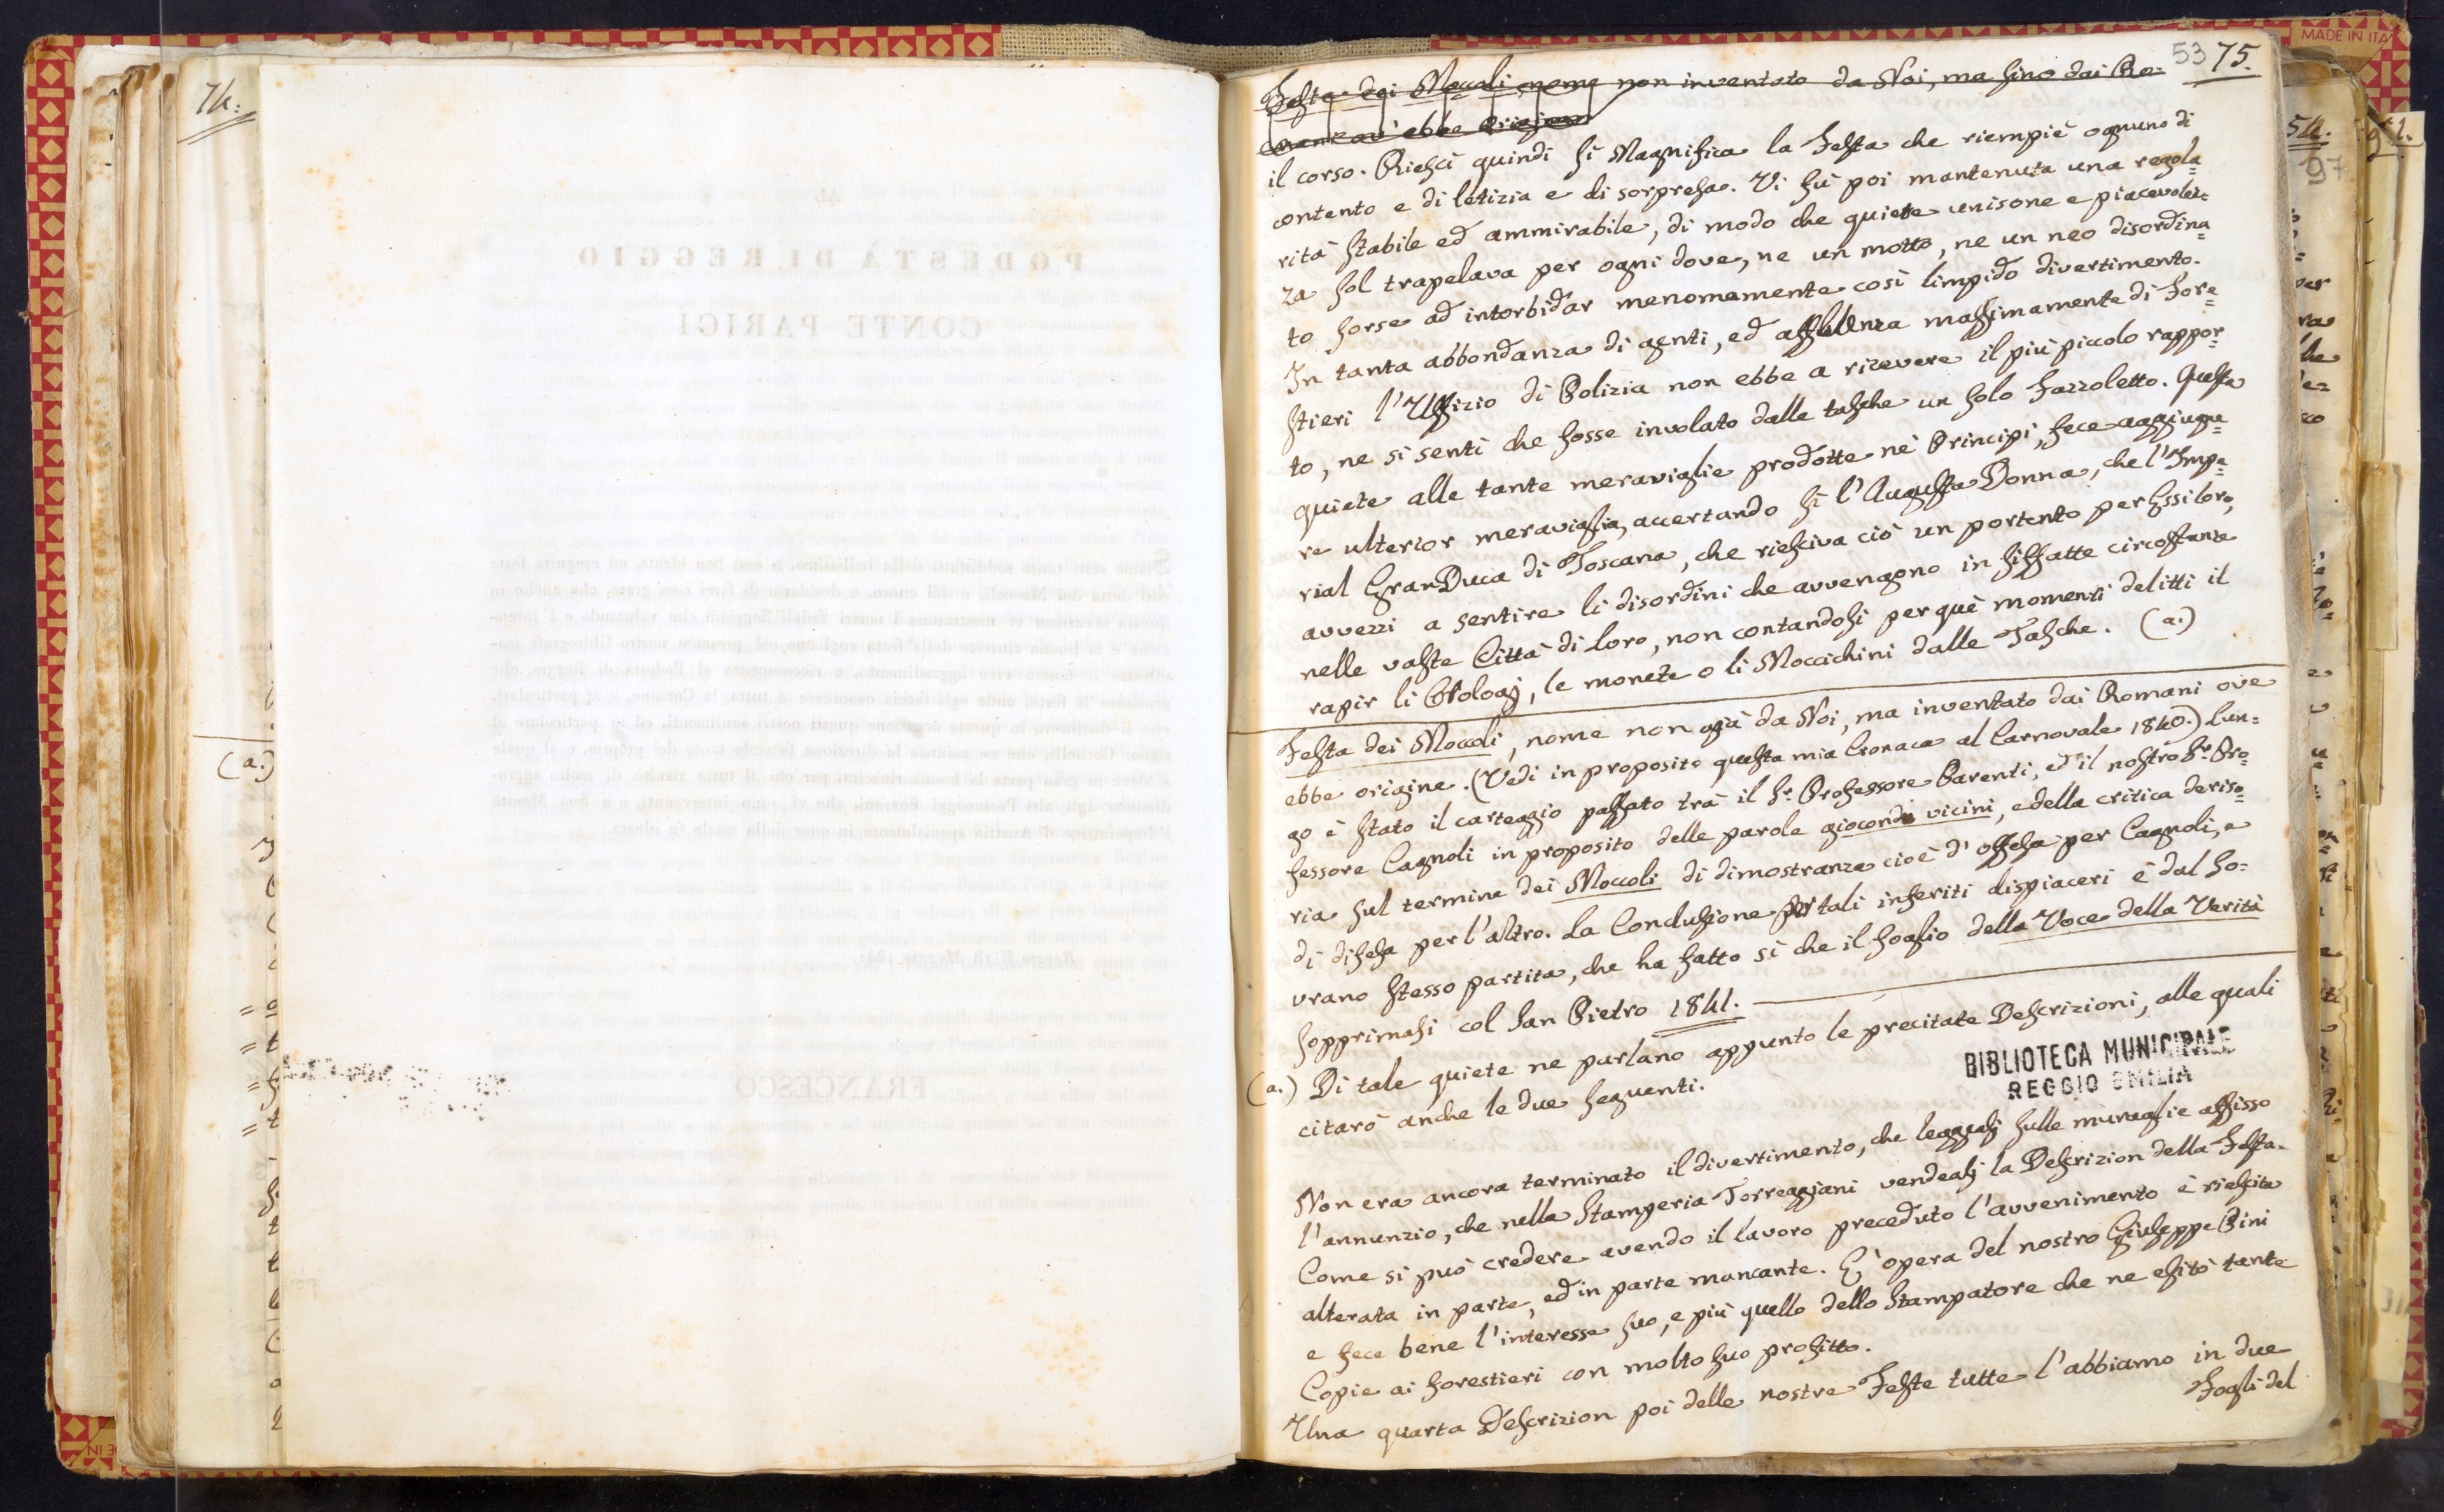 74.
(a.)
53 75.
Festa dei Moccoli, nome non inventato da Noi, ma sino dai Ro-
mani ov' ebbe origine
il corso. Riescì quindi sì Magnifica la Festa che riempiè ognuno di
contento e di letizia e di sorpresa. Vi fù poi mantenuta una regola=
rità stabile ed ammirabile, di modo che quiete unisone e piacevolez=
za sol trapelava per ogni dove, ne un motto, ne un neo disordina=
to sorse ad intorbidar menomamente così limpido divertimento.
In tanta abbondanza di genti, ed affluenza massimamente di Fore=
stieri l'Uffizio di Polizia non ebbe a ricevere il più piccolo rappor=
to, ne si sentì che fosse involato dalle tasche un solo Fazzoletto. Questa
quiete alle tante meraviglie prodotte nè Principi, fece aggiugne=
re ulterior meraviglia, accertando sì l'Augusta Donna, che l'Impe=
rial GranDuca di Toscana, che riesciva ciò un portento per Essi loro,
avvezzi a sentire li disordini che avvengono in siffatte circostanze
nelle vaste Città di loro, non contandosi per què momenti delitti il
rapir li Orologj, le monete o li Moccichini dalle Tasche. (a.)
Festa dei Moccoli, nome non già da Noi, ma inventato dai Romani ove
ebbe origine. (Vedi in proposito questa mia Cronaca al Carnovale 1840.) Lun=
go è stato il carteggio passato trà il Sr. Professore Parenti, ed il nostro Sr. Pro=
fessore Cagnoli in proposito delle parole giocondi vicini, e della critica deriso=
ria sul termine dei Moccoli di dimostranza cioè d'offesa per Cagnoli, e
di difesa per l'altro. La Conclusione per tali inseriti dispiaceri è dal So=
vrano stesso partita, che ha fatto sì che il foglio della Voce della Verità
sopprimasi col San Pietro 1841.
(a.) Di tale quiete ne parlano appunto le precitate Descrizioni, alle quali
citarò anche le due seguenti.
BIBLIOTECA MUNICIPALE
REGGIO EMILIA
Non era ancora terminato il divertimento, che leggeasi sulle muraglie affisso
l'annunzio, che nella Stamperia Torreggiani vendeasi la Descrizion della Festa.
Come si può credere avendo il lavoro preceduto l'avvenimento è riescita
alterata in parte, ed in parte mancante. E' opera del nostro Giuseppe Bini
e fece bene l'interesse suo, e più quello dello Stampatore che ne esitò tante
Copie ai forestieri con molto suo profitto.
Una quarta Descrizion poi delle nostre Feste tutte l'abbiamo in due
Fogli del